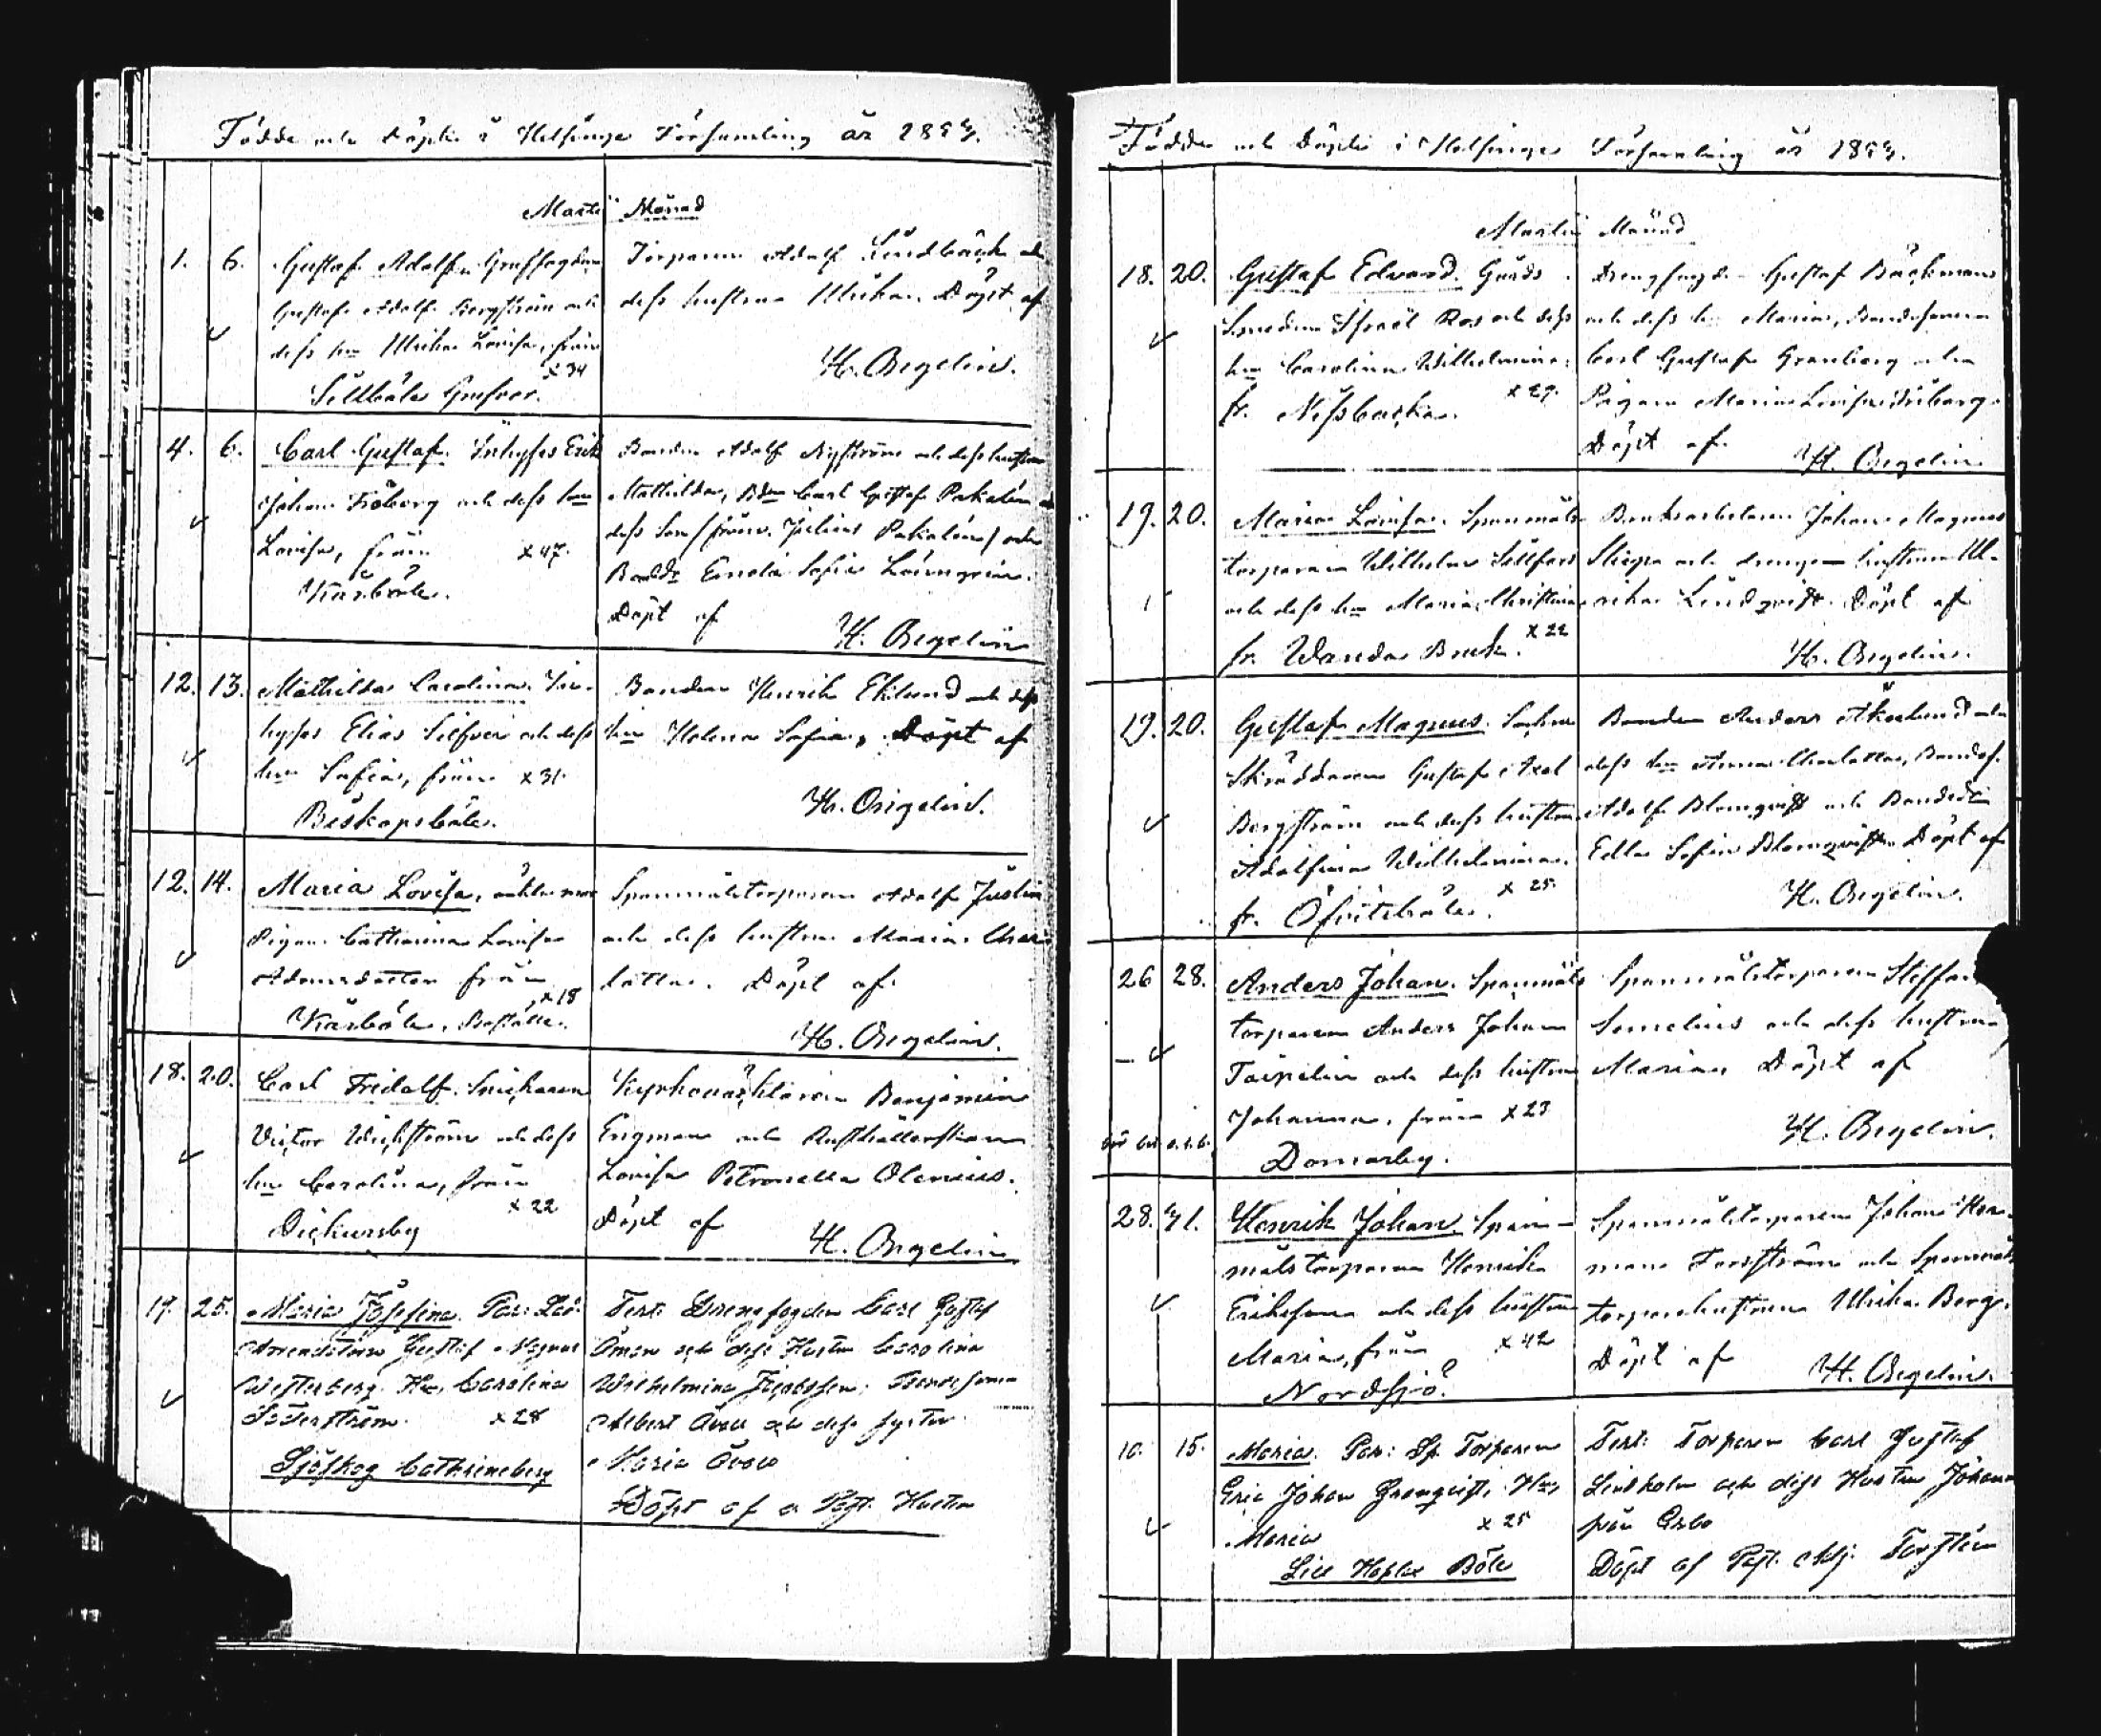 Födde och Döpte i Helsinge Församling år 1853.
Martii Månad
1. 6. Gustaf Adolf. Gruffogden
Gustaf Adolf Bergström och
dess hu Ulrika Lovisa, från
x 34
Sillböle Grufvor.
Torparen Adolf Lindbäck och
dess hustru Ulrika. Döpt af
H. Orgelin.
4. 6. Carl Gustaf. Inhyses Erik
Johan Fröberg och dess hu
Lovisa, från x 47.
Kårböle.
Bonden Adolf Nyström och dess hustru
Mathilda, Bdn Carl Gustaf Pakalén
dess Son (frånv. Julius Pakalén) och
Bondd. Emelie Sofia Löfvengrén.
Döpt af
H. Orgelin
12. 13. Mathilda Carolina. In-
hyses Elias Silfver och dess
hu Sofia, från x 31.
Biskopsböle.
Bonden Henrik Eklund och dess
hu Helena Sofia, Döpt af
H. Orgelin.
12. 14. Maria Lovisa, oäkta mor
Pigan Catharina Lovisa
Adamsdotter från
x 18
Kårböle, Boställe.
Spannmålstorparen Adolf Juslin
och dess hustru Maria Char-
lotta. Döpt af
H. Orgelin.
18. 20. Carl Fridolf. Snickaren
Victor Wickström och dess
hu Carolina, från
x 22
Dickursby
Kyrkovaktaren Benjamin
Engman och Rusthållerskan
Lovisa Petronella Olenius.
Döpt af
H. Orgelin
19. 25. Maria Josefina. Par:
Gustaf Magnus
Westerberg. Hu, Carolina
Söderström. x 28
Sjöskog Cathrineberg
Test: Drengfogden Carl Gustaf
Öman och dess Hustru Carolina
Wilhelmina Jacobsson; Bondesonen
Albert Öman och dess syster
Maria Öman
Döpt af a Past. Hustin
Födde och Döpte i Helsinge Församling år 1853.
Martii Månad
18. 20. Gustaf Edvard. Gårds
Smeden Israël Ros och dess
hu Carolina Wilhelmina.
x 27.
fr. Nissbacka.
Drengfogden Gustaf Bäckman
och dess hu Maria, Bondesonen
Carl Gustaf Granberg och
Pigan Maria Lovisa Friberg.
Döpt af
H. Orgelin
19. 20. Maria Lovisa. Spanmåls
torparen Wilhelm Sillfors
och dess hu Maria Christina
x 22
fr. Wanda Bruk.
Bruksarbetaren Johan Magnus
och drenge- hustrun Ul-
rika Lindqvist. Döpt af
H. Orgelin.
19. 20. Gustaf Magnus. Sochne
Skräddaren Gustaf Axel
Bergström och dess hustru
Adolfina Wilhelmina.
x 25
fr. Öfvitsböle.
Bonden Anders Åkerlund och
dess hu Anna Charlotta, Bondes.
Adolf Blomqvist och Bondedr
Edla Sofia Blomqvist. Döpt af
H. Orgelin.
26 28. Anders Johan. Spanmåls
torparen Anders Johan
Taipelin och dess hustru
Johanna, från x 23
Domarby.
Spannmålstorparen Steffan
Sonelius och dess hustru
Maria, Döpt af
H. Orgelin.
28. 31. Henrik Johan. Span-
målstorparen Henrik
Eriksson och dess hustru
Maria, från x 42
Nordsjö.
Spannmålstorparen Johan Her-
man Forsström och Spannmåls
torparehustrun Ulrika Berg.
Döpt af
H. Orgelin.
10. 15. Maria. Par: Sp. Torparen
Eric Johan Granqvist. Hu,
Maria x 25
Lill Hoplax Böle
Test: Torparen Carl Gustaf
Lindholm och dess Hustru Johana
från Esbo
Döpt af Past. Adj. Forstén